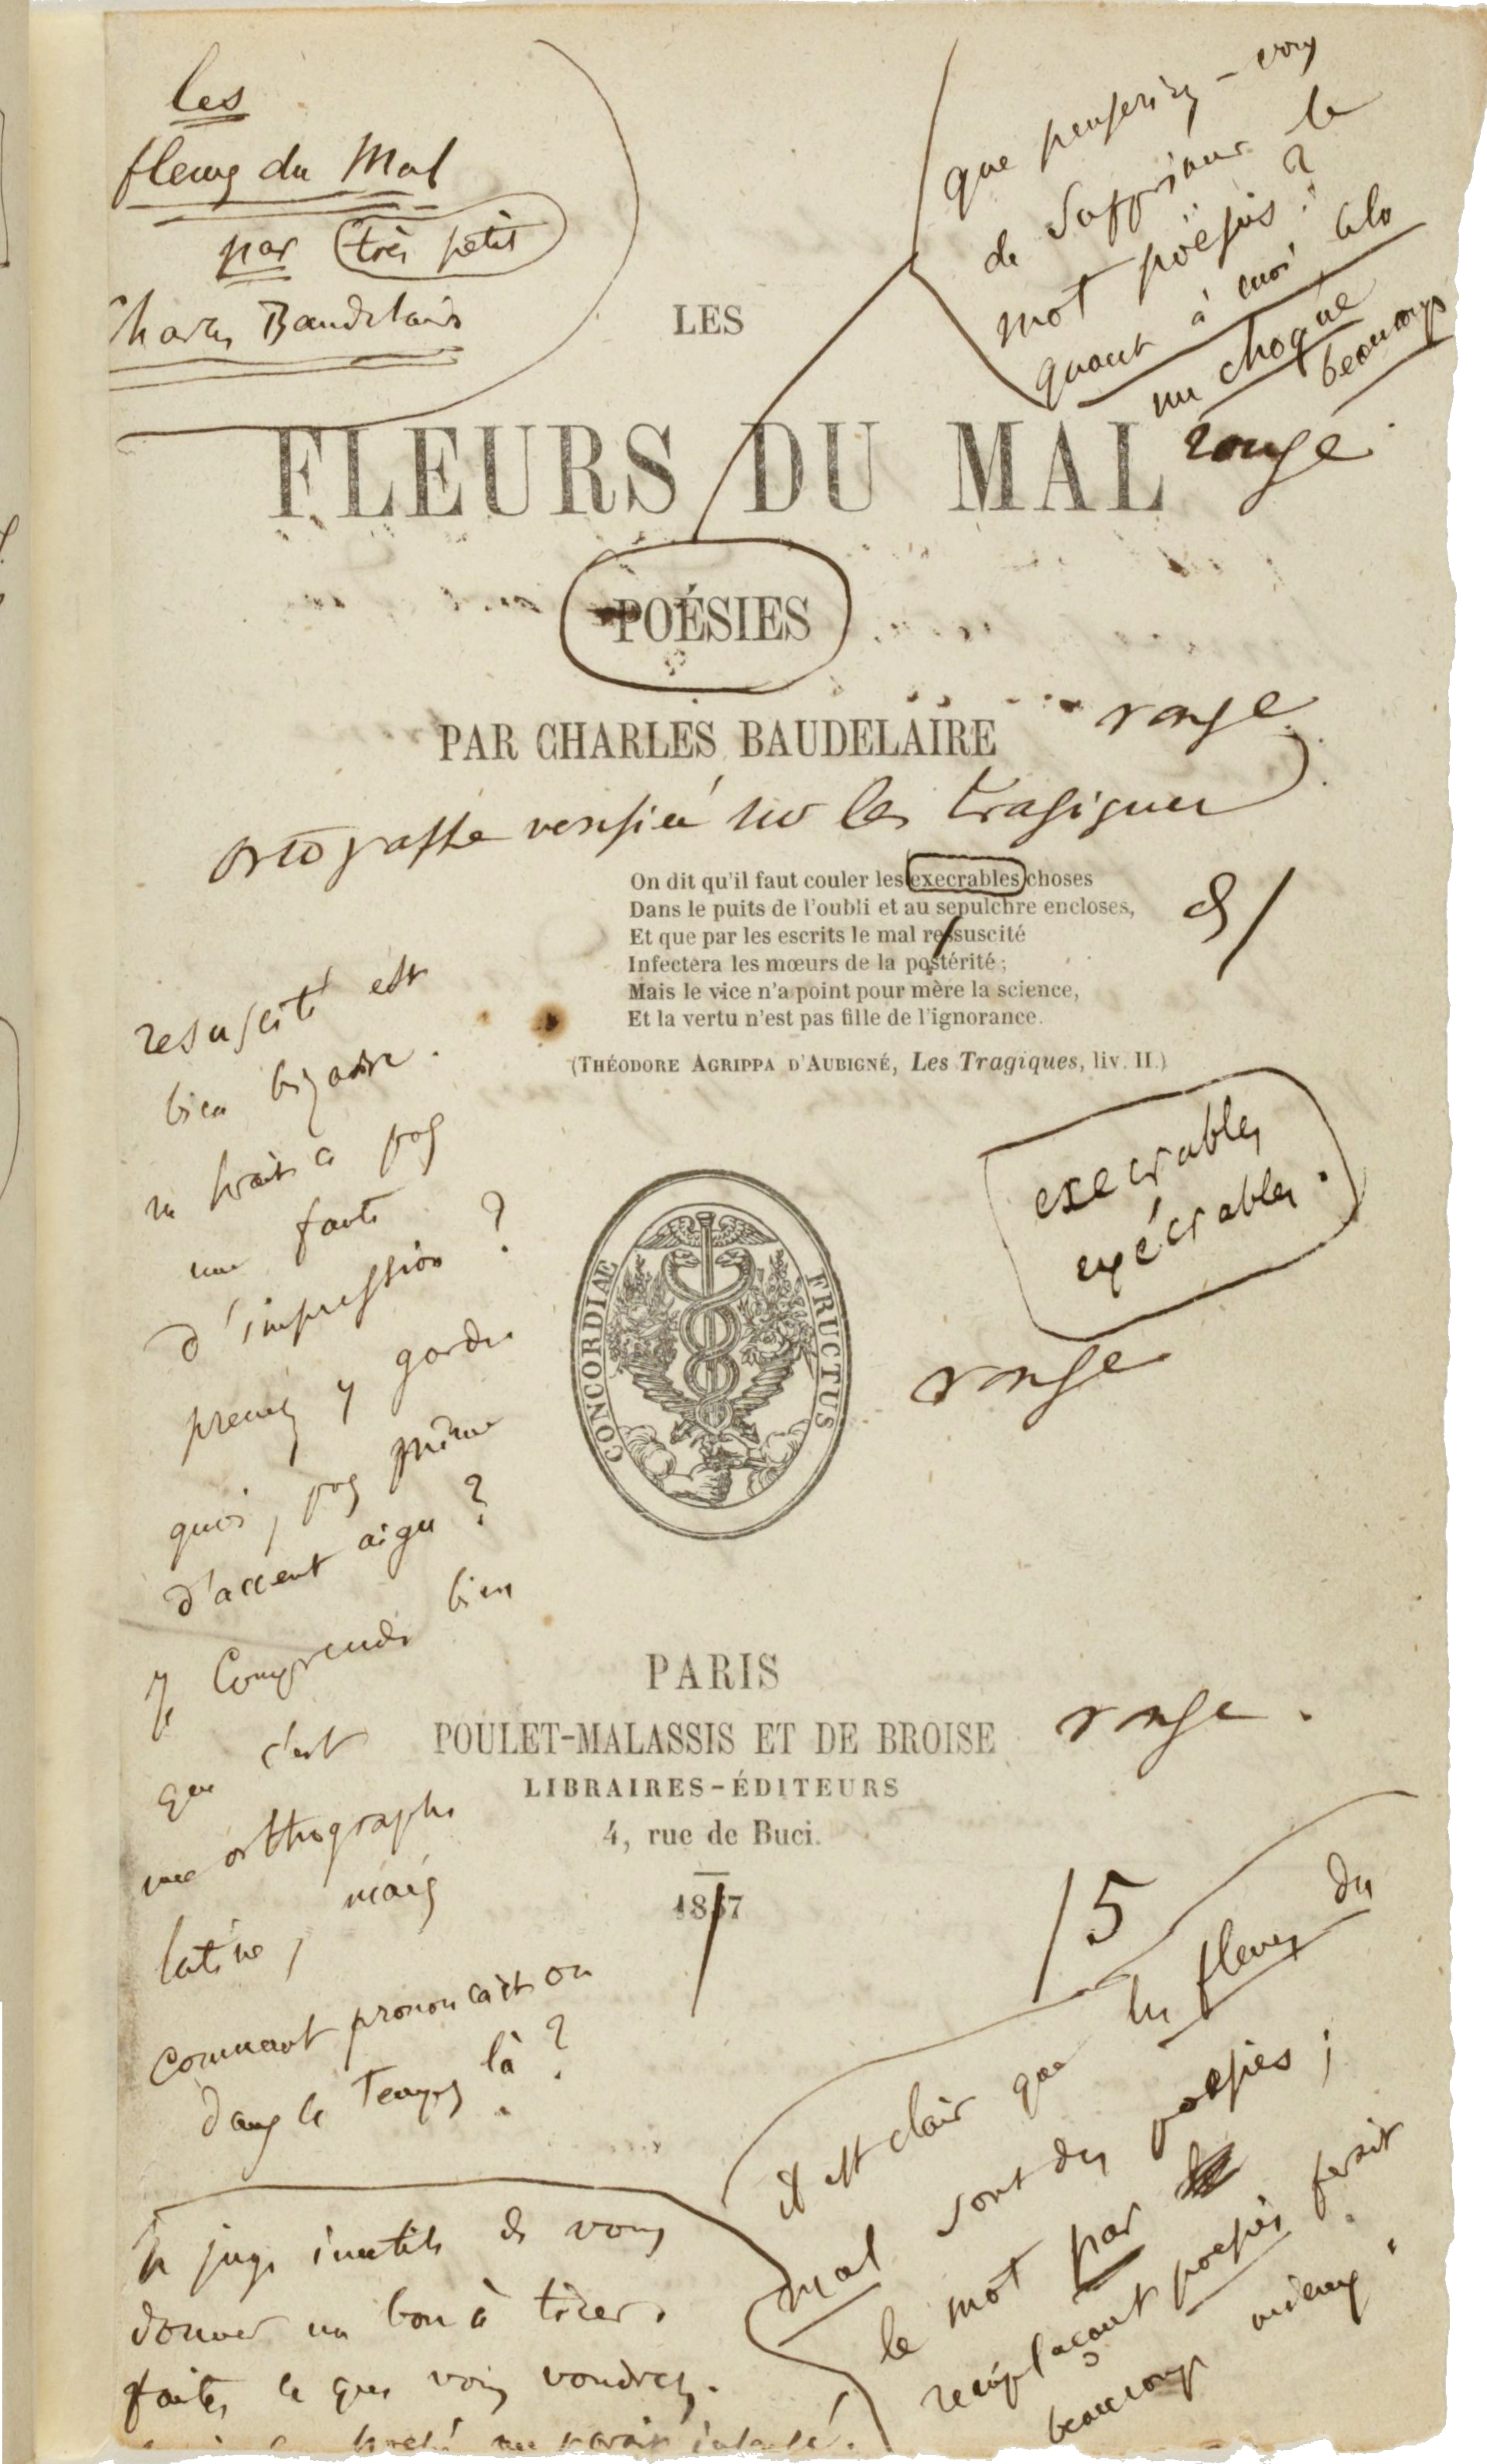 les
fleurs du Mal
par très petit
Charles Baudelaire
que penseriez-vous
de supprimer le
mot poësies ?
quant à moi cela
me choque
beaucoup
rouge
LES
FLEURS DU MAL
POÉSIES
PAR CHARLES BAUDELAIRE
rouge
ortographe verifiée sur les tragiques
On dit qu'il faut couler les execrables choses
Dans le puits de l'oubli et au sepulchre encloses,
Et que par les escrits le mal ressuscité
Infectera les mœurs de la postérité ;
Mais le vice n'a point pour mère la science,
Et la vertu n'est pas fille de l'ignorance.
(THÉODORE AGRIPPA D'AUBIGNÉ, Les Tragiques, liv. II.)
resuscité est
bien bizarre.
ne serait ce pas
une faute
d'impression ?
prenez y garde
quoi, pas même
d'accent aigu ?
Je comprends bien
que c'est
une orthographe
latine, mais
comment prononçait on
dans ce temps là ?
execrables
exécrables.
rouge
CONCORDIAE FRUCTUS
PARIS
POULET-MALASSIS ET DE BROISE
rouge.
LIBRAIRES-ÉDITEURS
4, rue de Buci.
1857
/5
il est clair que les fleurs du
mal sont des poesies ;
le mot par
remplaçant poesies ferait
beaucoup mieux.
Je juge inutile de vous
donner un bon à tirer.
faites ce que vous voudrez.